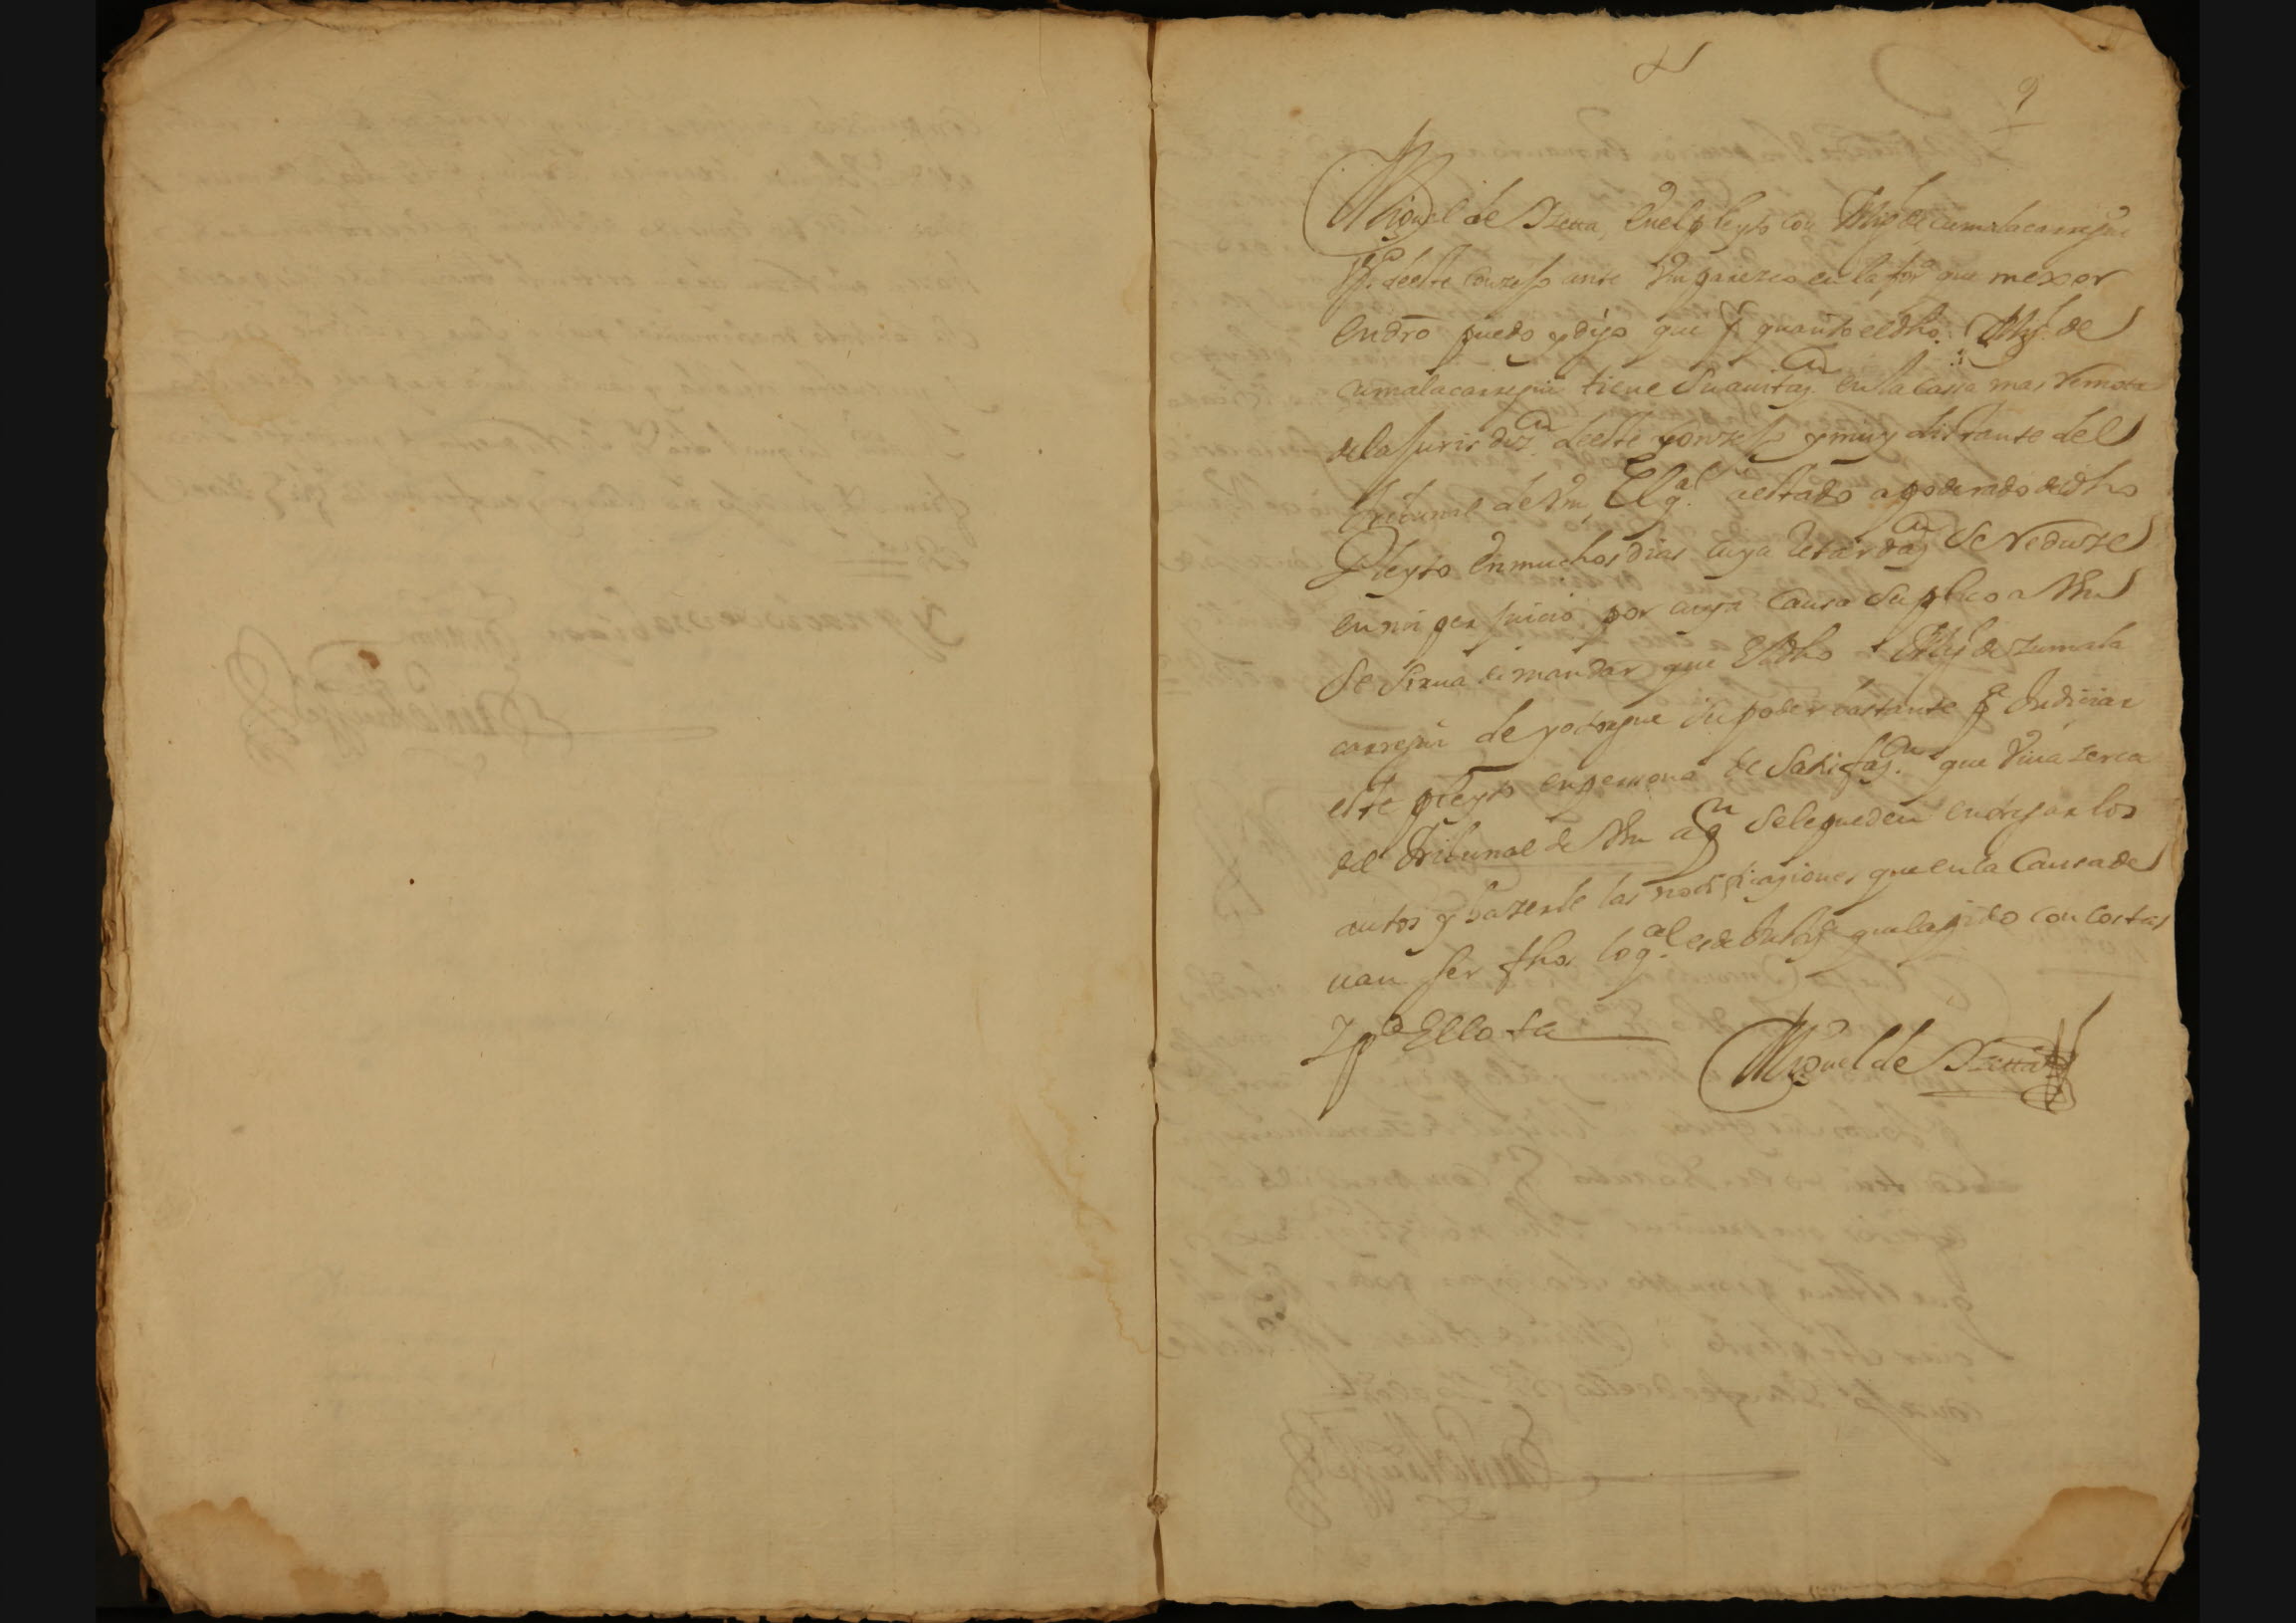 9
Miguel de Azetta, En el pleyto con Migl de cumalacarregui
Vº. de este Conzejo ante Vm parezco en la forª que mexor
en dro puedo y digo que pr quanto el dho. Migl. de
cumalacarregui tiene Su auitazon en la Cassa mas remota
de la Jurisdizon. de este Conzejo y muy distante del
tribunal de Vm, El ql. a estado apoderado de dho
Pleyto En muchos dias cuya retardazon Se reduze
en mi perjuicio por cuya Causa Suplico a Vm
Se Sirua de mandar que El dho Migl de zumala
carregui de y otorgue su poder bastante pª Indiciar
este pleyto en persona de Satisfazon. que viua zerca
del tribunal de Vm a qn Se le pueden entregar los
autos y hazerle las notificaziones que en la Causa de
uan ser fhos lo ql. es de Justª que la pido con costas
Y pª Ello ta
Miguel de Azetta